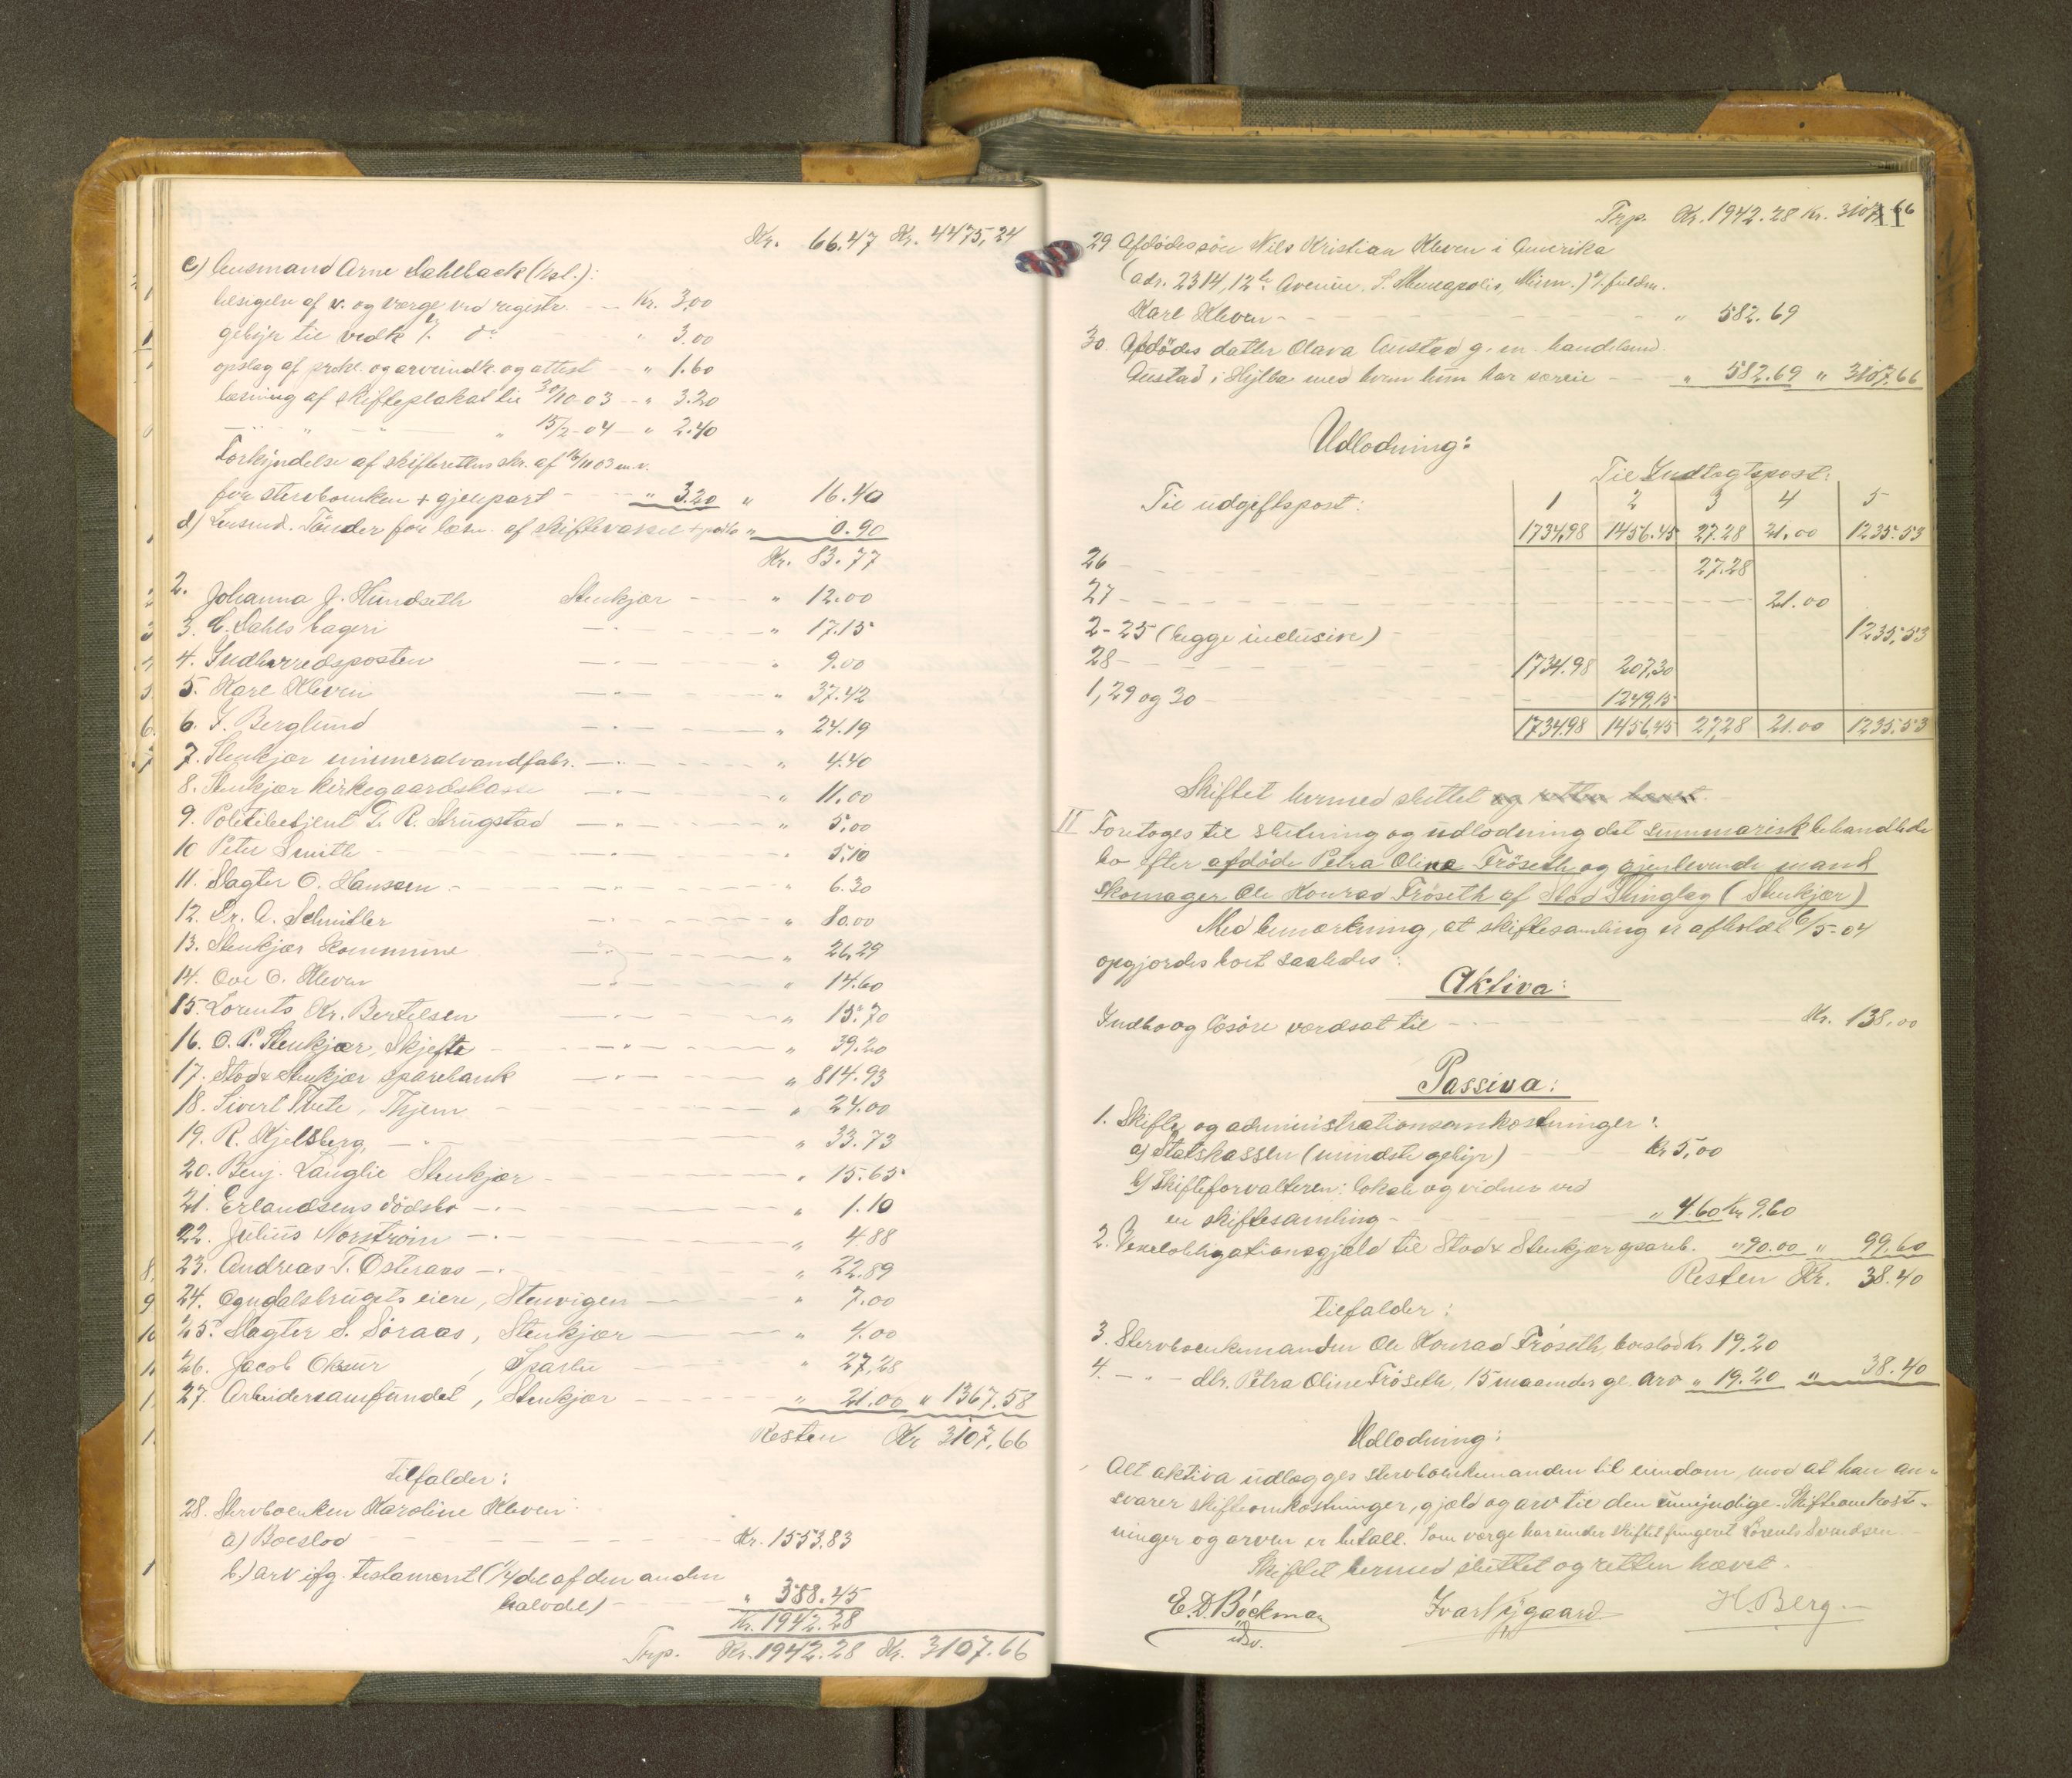 Kr. 66.47 Kr. 4475,24
c) Lensmand Arne Dahlback (hsl.):
tilsigelse af v. og værge ved registr. — Kr. 3,00
gebyr til vedk. do " 3.00
opslag af prokl. og arveindk. og attest " 1.60
læsning af skifteplakat til 30/10-03 - " 3.20
" " 15/2-04 - " 2.40
Forkyndelse af skifterettens skr. af 16/11 03 m.v.
for stervboenken + gjenpart - " 3.20 " 16.40
d) Lensmd. Tönder for læsn. af skiftevarsel + porto " 0.90
Kr. 83.77
2. Johanna J. Hundseth Stenkjær " 12.00
3. E. Dahls bageri — " — " 17.15
4. Indherredsposten — " — " 9.00
5. Karl Kleven — " — " 37.42
6. I. Berglund — " — " 24.19
7. Stenkjær mineralvandfabr. — " — " 4.40
8. Stenkjær kirkegaardskasse — " — " 11.00
9. Politibetjent G. R. Strugstad — " — " 5.00
10 Peter Smith — " — " 5.10
11. Slagter O. Hanssen — " — " 6.30
12. Dr. A. Schnitler — " — " 80.00
13. Stenkjær kommune — " — " 26,29
14. Ove O. Kleven — " — " 14.60
15. Lorents Kr. Bertelsen — " — " 15.70
16. O. P. Stenkjær, Skjefte — " — " 39.20
17. Stod & Stenkjær sparebank — " — " 814.93
18. Sivert Tvete, Thjem " 24.00
19. R. Kjelsberg, — " " 33.73
20. Benj. Langlie Stenkjær " 15.65
21. Erlandsens dödsbo — " — " 1.10
22. Julius Norström — " — " 4.88
23. Andreas T. Österaas — " " 22.89
24. Ogndalsbrugets eiere, Stenvigen " 7.00
25. Slagter S. Søraas, Stenkjær " 4.00
26. Jacob Oksur, Sparbu " 27,28
27. Arbeidersamfundet, Stenkjær " 21.00 " 1367.58
Resten Kr 3107,66
Tilfalder:
28. Stervboenken Karoline Kleven:
a) Boeslod Kr. 1553.83
b.) arv ifg. testament (1/4 del af den anden
halvdel) " 388.45
Kr. 1942.28
Trp. Kr. 1942.28 Kr. 3107.66
XI
Trp. Kr. 1942.28 Kr. 3107.66
29 Afdødes søn Nils Kristian Kleven i Amerika
(adr. 2314, 12th Avenue, S. Minneapolis, Minn.) v/ fuldm.
Karl Kleven " 582.69
30. Afdødes datter Olava Anstad g. m. handelsmd.
Anstad i Hylla med hvem hun har særeie " 582.69 " 3107.66
Udlodning:
Til Indtægtspost:
Til udgiftspost: 1 2 3 4 5
1734.98 1456.45 27.28 21.00 1235.53
26 27.28
27 21.00
2-25 (begge inclusive) 1235,53
28 1734.98 207,30
1, 29 og 30 1249,15
1734.98 1456,45 27,28 21.00 1235.53
Skiftet hermed sluttet og retten hævet.
II Foretoges til slutning og udlodning det summarisk behandlede
bo efter afdöde Petra Oline Fröseth og gjenlevende mand
skomager Ole Konrad Fröseth af Stod thinglag (Stenkjær)
Med bemærkning, at skiftesamling er afholdt 6/5-04
opgjordes boet saaledes:
Aktiva:
Indbo og løsøre værdsat til Kr. 138,00
Passiva:
1. Skifte og administrationsomkostninger:
a) Statskassen (mindste gebyr) Kr 5,00
b) Skifteforvalteren: lokale og vidner ved
en skiftesamling " 4.60 Kr 9,60
2. Vexelobligationsgjæld til Stod & Stenkjær spareb. " 90.00 " 99,60
Resten Kr. 38.40
tilfalder:
3. Stervboenkemanden Ole Konrad Fröseth, boeslod Kr 19.20
4. — " — dtr. Petra Oline Fröseth, 15 maaneder gl. arv " 19.20 " 38.40
Udlodning:
Alt aktiva udlægges stervboenkemanden til eiendom, mod at han an-
svarer skifteomkostninger, gjæld og arv til den umyndige. Skifteomkost-
ninger og arven er betalt. Som værge har under skiftet fungeret Lorents Svendsen.
Skiftet hermed sluttet og retten hævet.
E. D. Böckman Ivar Nygaard H. Berg.